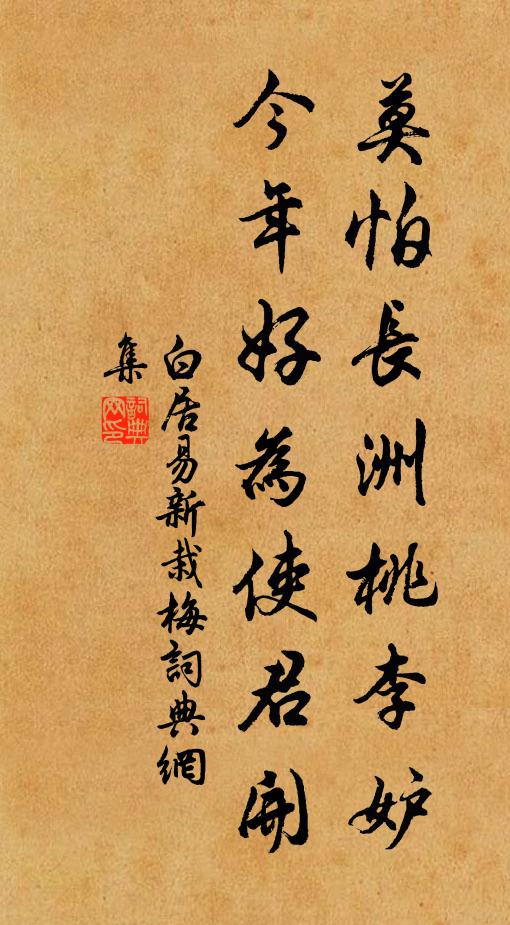 莫怕長洲桃李妒
今年好為使君開
白居易新栽梅詞典網
集
詞典
网印